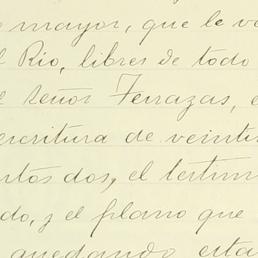 mayor, que le
Rio, libres de todo
señor Terrazas,
escritura de veinti
ntos dos, el testim
do, y el plano que
quedando esta